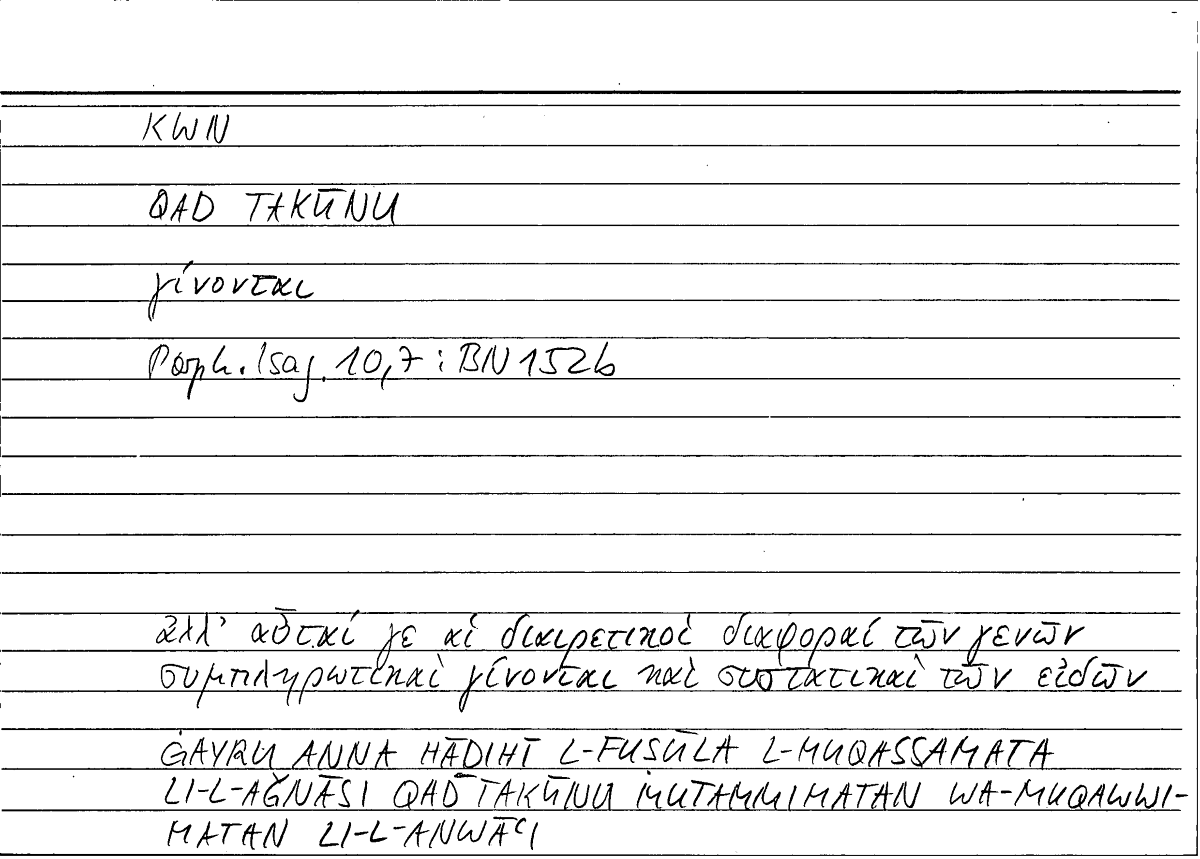 KWN
QAD TAKŪNU
γίνονται
Porph. Isag. 10,7 : BN 152b
ἀλλ' αὗταί γε αἱ διαιρετικαὶ διαφοραὶ τῶν γενῶν
συμπληρωτικαὶ γίνονται καὶ συστατικαὶ τῶν εἰδῶν
ĠAYRU ANNA HĀDIHĪ L-FUSŪLA L-MUQASSAMATA
LI-L-AǦNĀSI QAD TAKŪNU MUTAMMIMATAN WA-MUQAWWI-
MATAN LI-L-ANWĀʿI